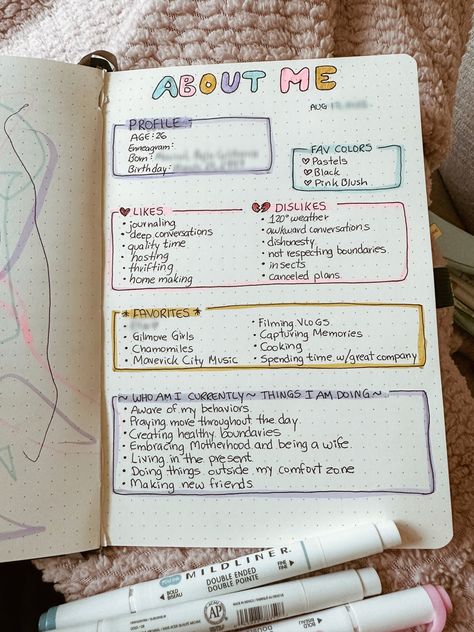 ABOUT ME
AUG
PROFILE
AGE: 26
Enneagram:
Born:
Birthday:
FAV COLORS
Pastels
Black
Pink Blush
LIKES
• journaling
• deep conversations
• quality time
• hosting
• thrifting
• home making
DISLIKES
• 120° weather
• awkward conversations
• dishonesty
• not respecting boundaries
• insects
• canceled plans
* FAVORITES *
• Gilmore Girls
• Chamomiles
• Maverick City Music
• Filming VLOGS
• Capturing Memories
• Cooking
• Spending time w/great company
~ WHO AM I CURRENTLY ~ THINGS I AM DOING ~
• Aware of my behaviors
• Praying more throughout the day
• Creating healthy boundaries
• Embracing Motherhood and being a wife
• Living in the present
• Doing things outside my comfort zone
• Making new friends
MILDLINER
DOUBLE ENDED
DOUBLE POINTE
BOLD
BISEAU
FINE
BOLD
BISEAU
AP